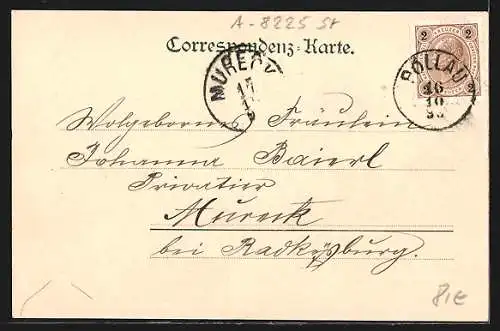 A-8225 St
Correspondenz-Karte.
MURECK
17
2 2
PÖLLAU
16
10
98
2
Wolgebornes Fräulein
Johanna Baierl
Privatier
Mureck
bei Radkersburg.
8,€